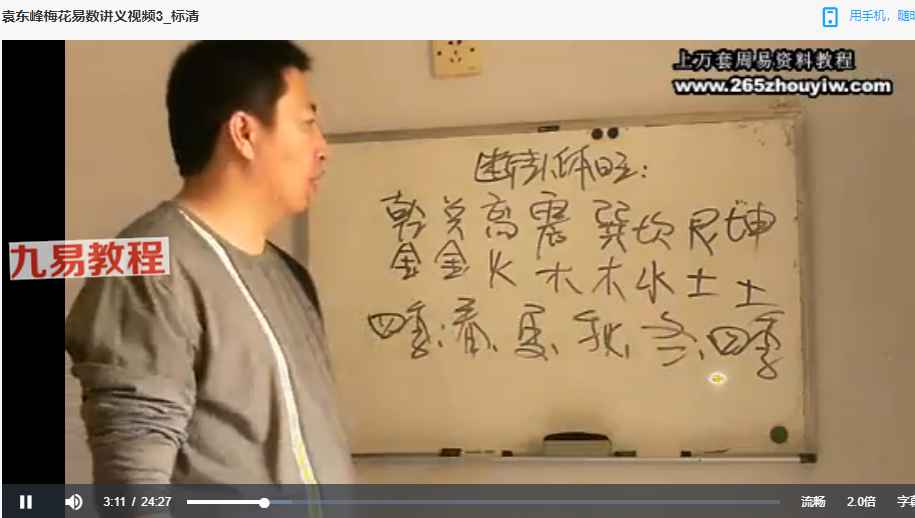 袁东峰梅花易数讲义视频3_标清
用手机，随时
上万套周易资料教程
www.265zhouyiw.com
九易教程
乾 兑 离 震 巽 坎 艮 坤
金 金 火 木 木 水 土 土
四季、春、夏、秋、冬、四季
3:11 / 24:27
流畅 2.0倍 字幕